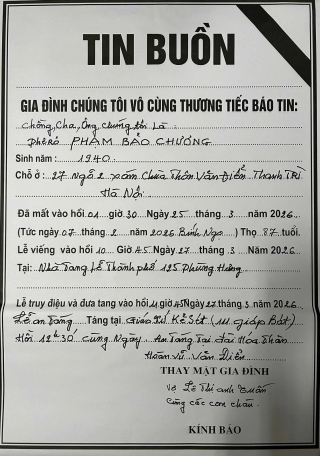 TIN BUỒN
GIA ĐÌNH CHÚNG TÔI VÔ CÙNG THƯƠNG TIẾC BÁO TIN:
Chồng, Cha, Ông chúng tôi Là
Phêrô PHẠM BẢO CHƯƠNG
Sinh năm : 1940
Chỗ ở : 27 Ngõ 2 xóm Chùa Thôn Văn Điển Thanh Trì
Hà Nội
Đã mất vào hồi 01 giờ 30 Ngày 25 tháng 3 năm 2026
(Tức ngày 07 tháng 2 năm 2026 Bính Ngọ) Thọ 87 tuổi.
Lễ viếng vào hồi 10 Giờ 45 Ngày 27 tháng 3 Năm 2026
Tại: Nhà Tang Lễ Thành phố 125 Phùng Hưng
Lễ truy điệu và đưa tang vào hồi 11 giờ 45 Ngày 27 tháng 3 năm 2026
Lễ an táng Táng tại Giáo xứ Kẻ Sét (111 giáp Bát)
Hồi 12h30 cùng Ngày An Táng Tại Đài Hóa Thân
Hoàn Vũ Văn Điển
THAY MẶT GIA ĐÌNH
Vợ Lê Thị anh
Cùng các con cháu
KÍNH BÁO